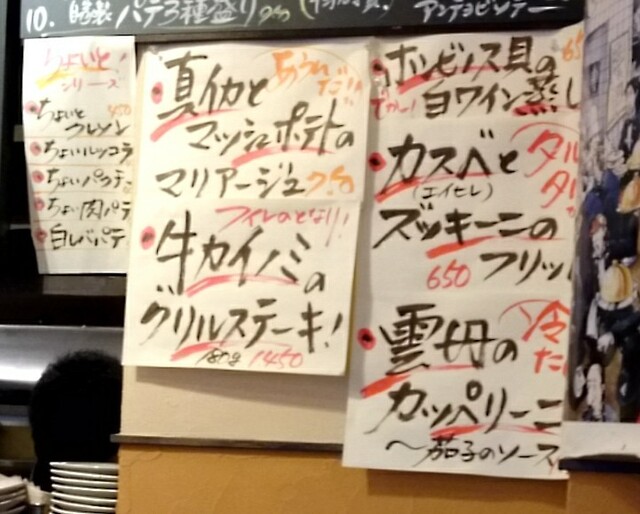 10. 自製 パテ3種盛り
ちょいと!
シリーズ
ちょいと 450
フレンン
ちょいルッコラ
ちょいパクチー
ちょい肉パテ
白レバパテ
真イカと
マッシュポテトの
マリアージュ 750
フィレのとなり!
牛カイノミの
グリルステーキ!
180g 1450
ホンビノス貝の
でかー!
白ワイン蒸し
カスベと
(エイヒレ)
ズッキーニの
650 フリッ
雲丹の
冷
た
カッペリーニ
~茄子のソース